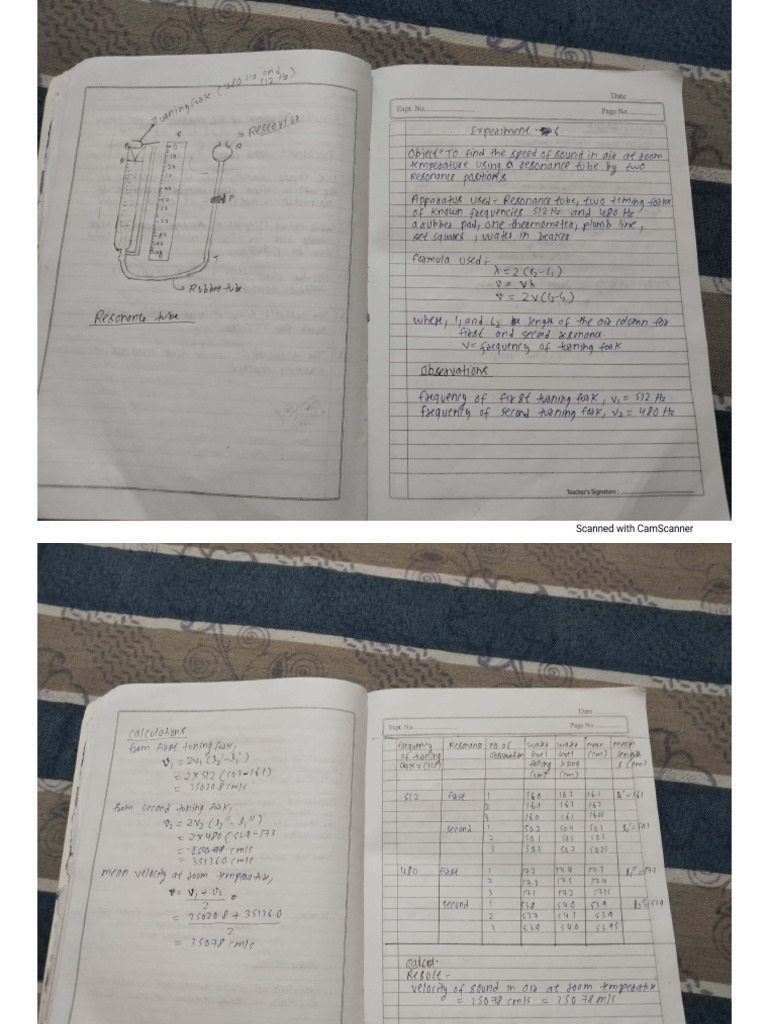 Tuning fork (480 Hz and
512 Hz)
Reservoir
R
P
T
Rubber tube
Resonance tube
Date
Expt. No.
Page No.
Experiment - 6
Object:- To find the speed of sound in air at room
temperature using a resonance tube by two
Resonance positions
Apparatus used:- Resonance tube, two tuning forks
of known frequencies 512 Hz and 480 Hz
a rubber pad, one thermometer, plumb line,
set squares, water in beaker
formula used:-
λ = 2(l2-l1)
v = νλ
v = 2ν(l2-l1)
where, l1 and l2 length of the air column for
first and second resonance.
ν = frequency of tuning fork
Observations
frequency of first tuning fork, ν1 = 512 Hz
frequency of second tuning fork, ν2 = 480 Hz
Teacher's Signature :
Scanned with CamScanner
Calculations
from first tuning fork,
v1 = 2ν1 (l2' - l1')
= 2×512 (50.3-16.1)
= 35020.8 cm/s
from second tuning fork,
v2 = 2ν2 (l2'' - l1'')
= 2×480 (53.9-17.3
= 35136.0 cm/s
mean velocity at room temperature,
v = v1 + v2
2
= 35020.8 + 35136.0
2
= 35078 cm/s
Date
Expt. No.
Page No.
frequency of tuning fork ν (Hz) Resonance no. of observation water level falling (cm) water level rising (cm) mean (cm) mean length l (cm)
512 first 1 16.0 16.2 16.1 l1' = 16.1
2 16.1 16.3 16.2
3 16.0 16.1 16.05
second 1 50.2 50.4 50.3 l2' = 50.3
2 50.1 50.5 50.3
3 50.3 50.2 50.25
480 first 1 17.2 17.4 17.3 l1'' = 17.3
2 17.3 17.5 17.4
3 17.1 17.2 17.15
second 1 53.8 54.0 53.9 l2'' = 53.9
2 53.7 54.1 53.9
3 53.9 54.0 53.95
Result -
velocity of sound in air at room temperature
= 35078 cm/s = 350.78 m/s